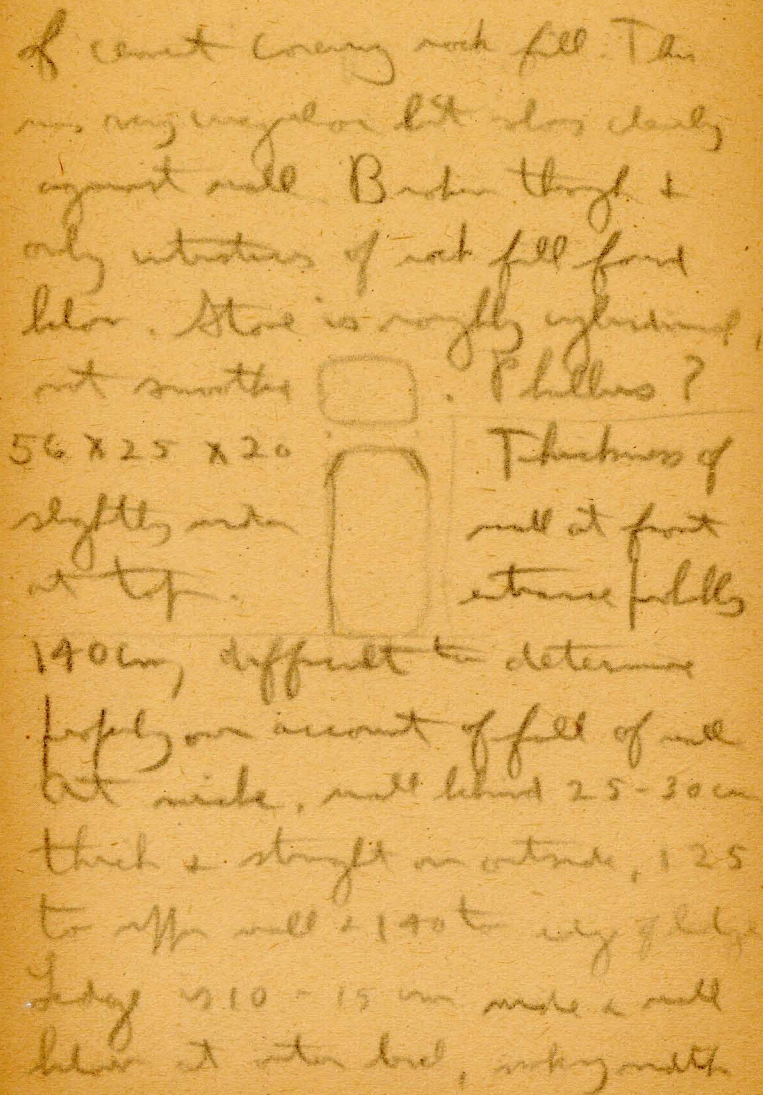 of cement covering rock fill. This
was very irregular but shows clearly
against wall. Broken through &
only interstices of rock fill found
below. Stone is roughly cylindrical,
not smoothe . Phallus?
56 x 25 x 20
slightly wider
at top.
Thickness of
wall at front
entrance probably
140 cm, difficult to determine
properly on account of fall of wall
At niche, wall behind 25-30 cm
thick & straight on outside, 125
to upper wall & 140 to edge of ledge
Ledge is 10 - 15 cm wide & wall
below at outer level, making width